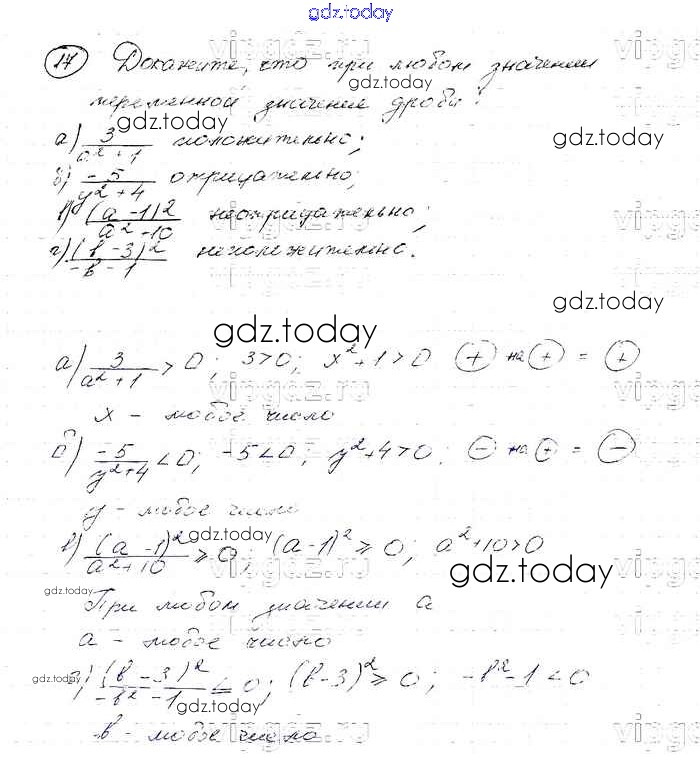 gdz.today
17 Докажите, что при любом значении
gdz.today
переменной значение дроби:
gdz.today
gdz.today
а) 3/(a²+1) положительно;
б) -5/(y²+4) отрицательно;
в) (a-1)²/(a²+10) неотрицательно;
г) (b-3)²/(-b-1) неположительно.
gdz.today
gdz.today
а) 3/(a²+1) > 0; 3>0; x²+1>0 (+) на (+) = (+)
x - любое число
б) -5/(y²+4) < 0; -5<0; y²+4>0; (-) на (+) = (-)
y - любое число
gdz.today
в) (a-1)²/(a²+10) ≥ 0; (a-1)² ≥ 0; a²+10>0
gdz.today
gdz.today
При любом значении a
a - любое число
г) (b-3)²/(-b²-1) ≤ 0; (b-3)² ≥ 0; -b²-1<0
gdz.today
gdz.today
b - любое число